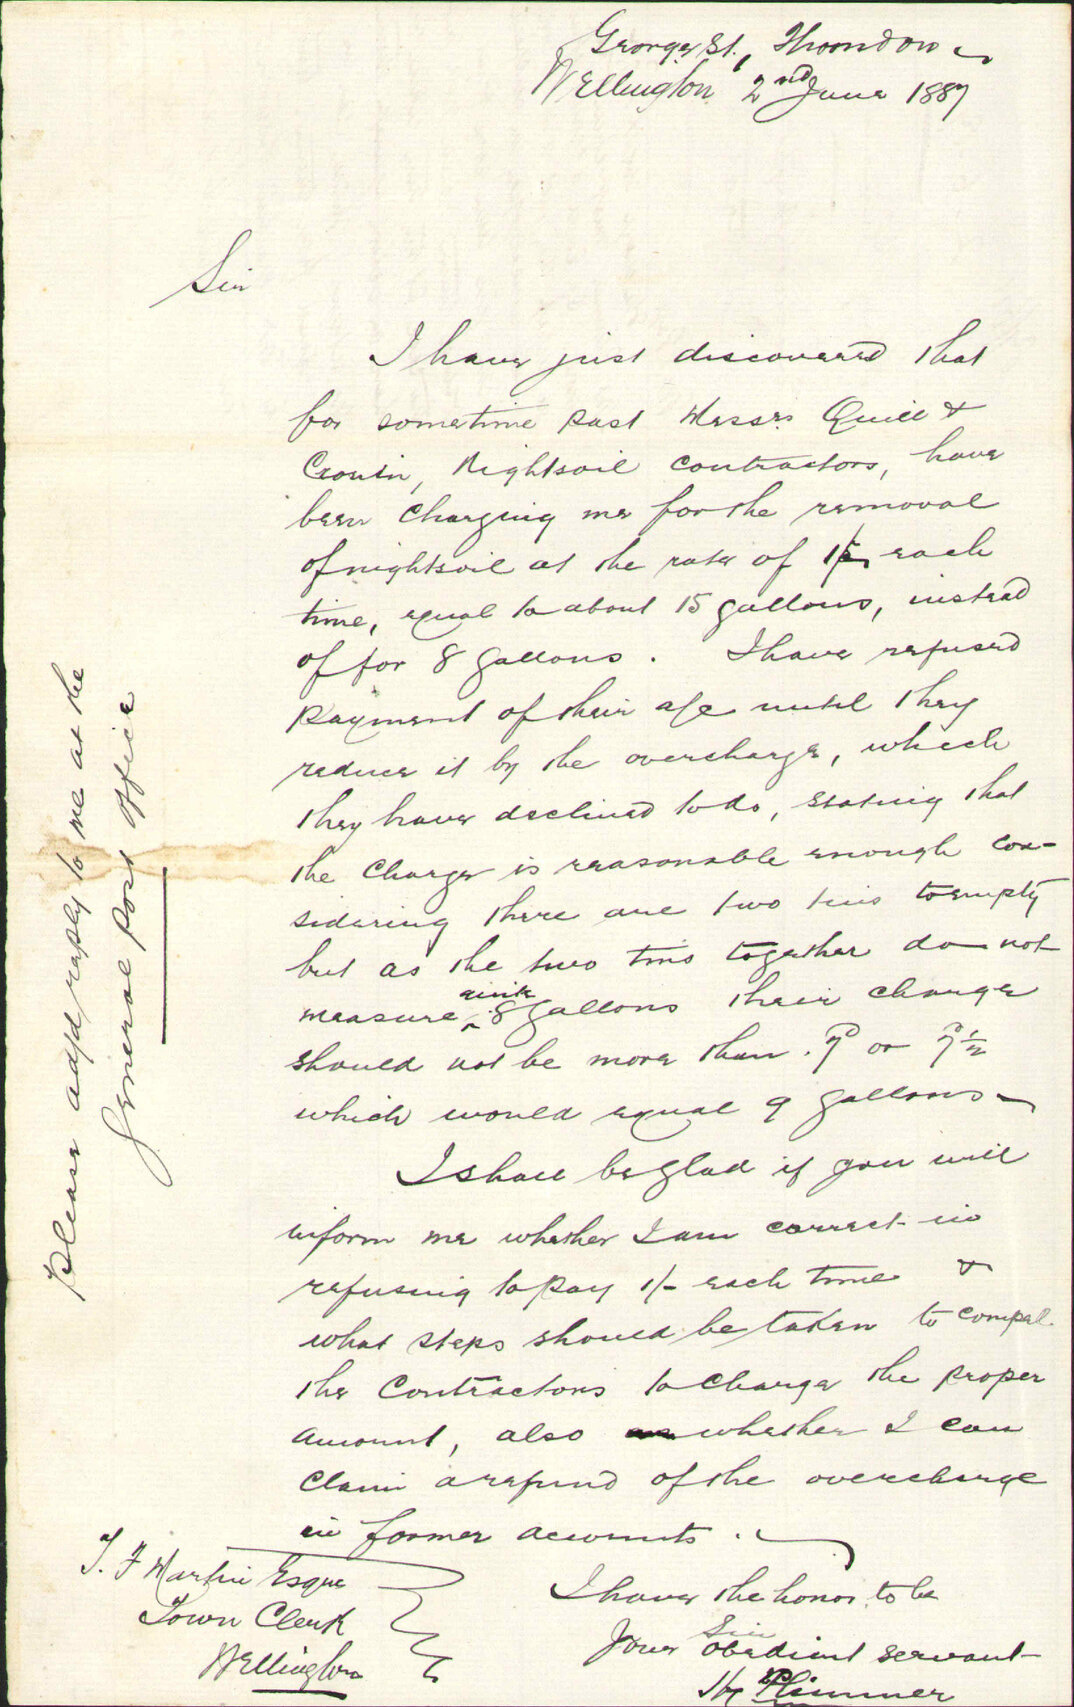 George St., Thorndon
Wellington 2nd June 1887
Sir
I have just discovered that
for sometime past Messrs Quill &
Cronin, Nightsoil Contractors, have
been charging me for the removal
of nightsoil at the rate of 1/- each
time, equal to about 15 gallons, instead
of for 8 gallons. I have refused
payment of their a/c until they
reduce it by the overcharge, which
they have declined to do, stating that
the charge is reasonable enough con-
sidering there are two tins to empty
but as the two tins together do not
measure quite 8 gallons their charge
should not be more than 7d or 7d½
which would equal 9 gallons
I shall be glad if you will
inform me whether I am correct in
refusing to pay 1/- each time &
what steps should be taken to compel
the Contractors to charge the proper
amount, also whether I can
claim a refund of the overcharge
in former accounts.
I have the honor to be
Sir
Your obedient servant
Hy Plimmer
T. F Martin Esque
Town Clerk
Wellington
Please add reply to me at the
General Post Office